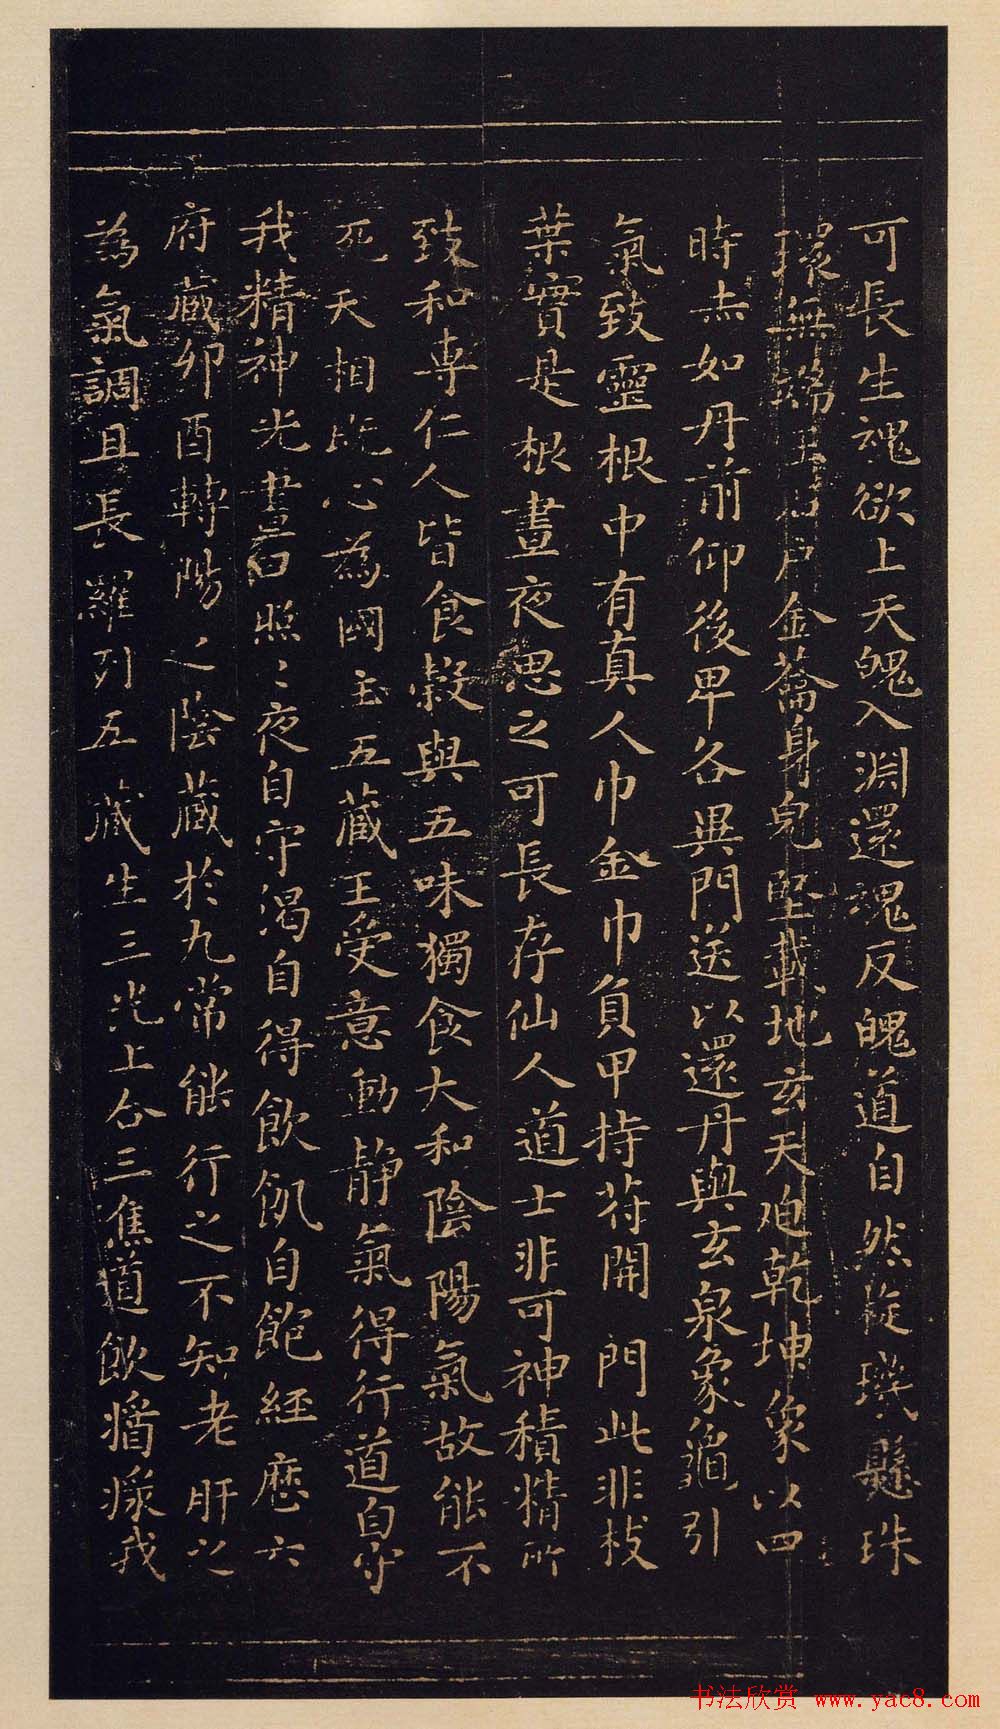 可長生魂欲上天魄入淵還魂反魄道自然旋璣懸珠
環無端玉石戶金籥身皃堅載地玄天迴乾坤象以四
時赤如丹前仰後卑各異門送以還丹與玄泉象龜引
氣致靈根中有真人巾金巾負甲持符開門此非枝
葉實是根晝夜思之可長存仙人道士非可神積精所
致和專仁人皆食穀與五味獨食大和陰陽氣故能不
死天相既心為國主五藏王受意動靜氣得行道自守
我精神光晝日照〻夜自守渴自得飲飢自飽經歷六
府藏卯酉轉陽之陰藏於九常能行之不知老肝之
為氣調且長羅列五藏生三光上合三焦道飲醬漿我
书法欣赏 www.yac8.com